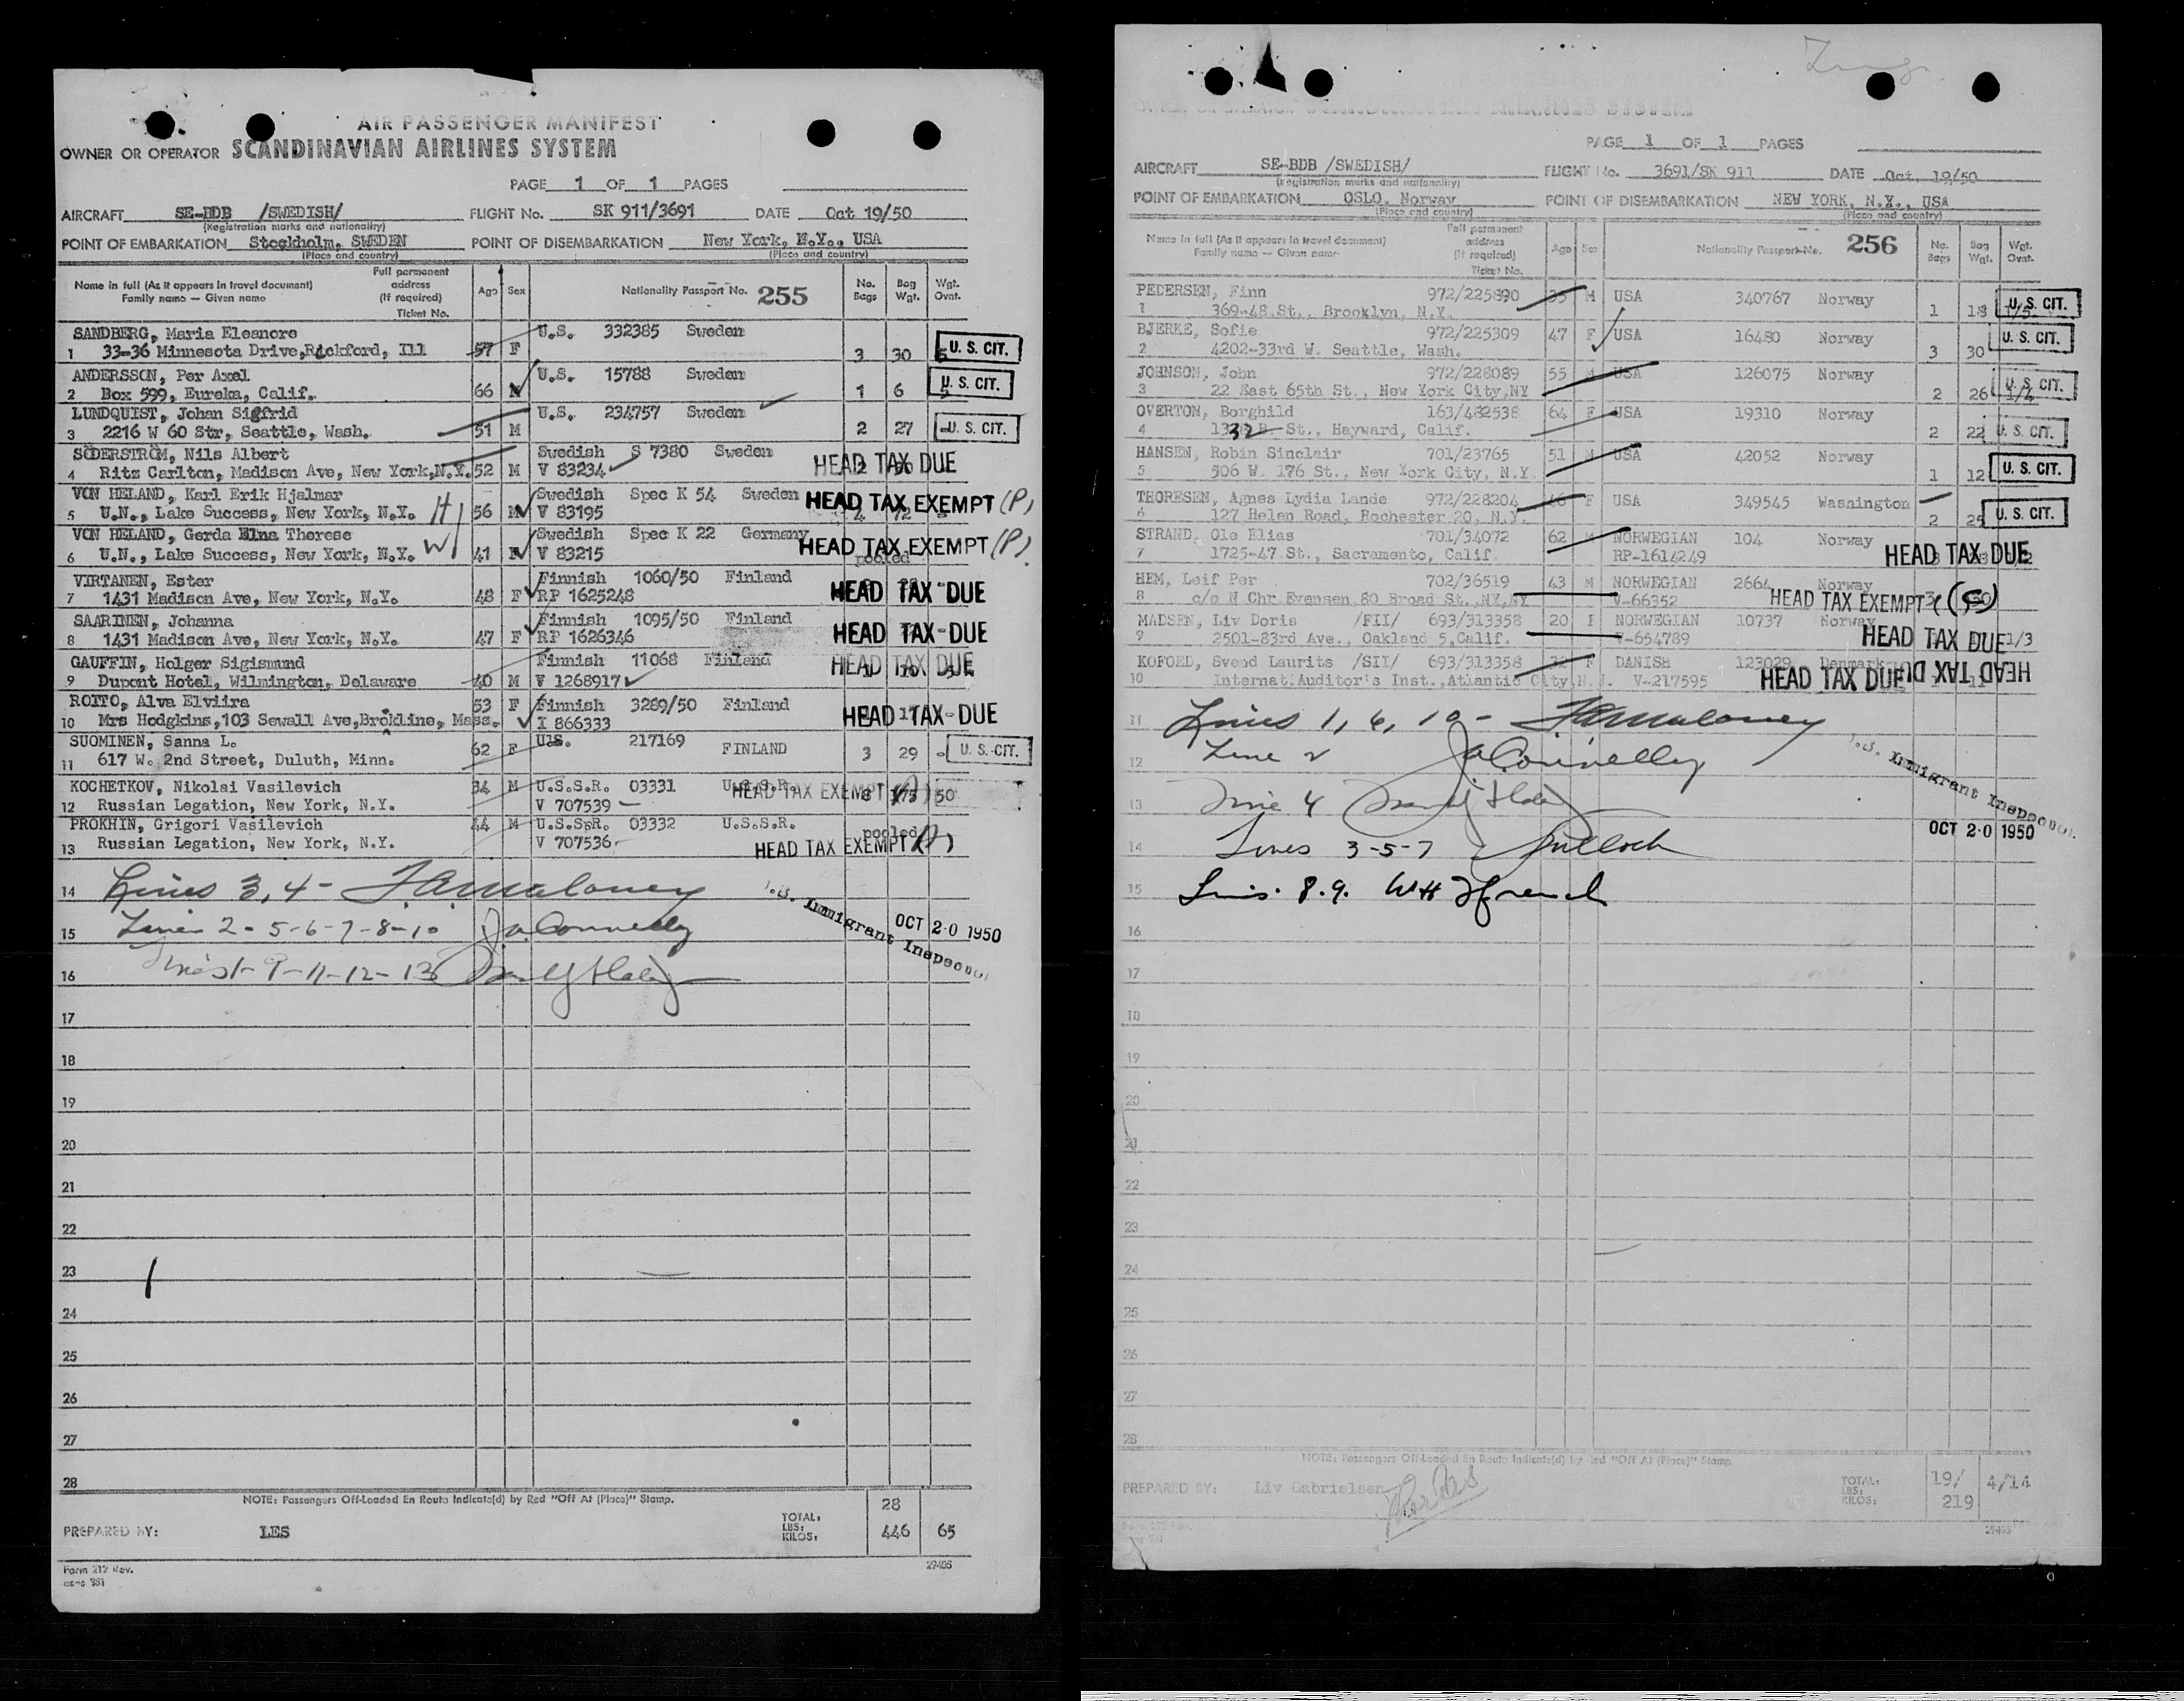 AIR PASSENGER MANIFEST
OWNER OR OPERATOR SCANDINAVIAN AIRLINES SYSTEM
PAGE 1 OF 1 PAGES
AIRCRAFT SE-BDB /SWEDISH/ FLIGHT No. SK 911/3691 DATE Oct 19/50
(Registration marks and nationality)
POINT OF EMBARKATION Stockholm, SWEDEN POINT OF DISEMBARKATION New York, N.Y., USA
(Place and country) (Place and country)
Name in full (As it appears in travel document) Family name — Given name Full permanent address (If required) Ticket No. Age Sex Nationality Passport No. 255 No. Bags Bag Wgt. Wgt. Ovnt.
SANDBERG, Maria Eleanore U.S. 332385 Sweden
1 33-36 Minnesota Drive, Rockford, Ill 57 F 3 30 U. S. CIT.
ANDERSSON, Per Axel U.S. 15788 Sweden
2 Box 599, Eureka, Calif. 66 M 1 6 U. S. CIT.
LUNDQUIST, Johan Sigfrid U.S. 234757 Sweden
3 2216 W 60 Str, Seattle, Wash. 51 M 2 27 U. S. CIT.
SÖDERSTRÖM, Nils Albert Swedish S 7380 Sweden
4 Ritz Carlton, Madison Ave, New York, N.Y. 52 M V 83234 HEAD TAX DUE
VON HELAND, Karl Erik Hjalmar Swedish Spec K 54 Sweden
5 U.N., Lake Success, New York, N.Y. H 56 M V 83195 HEAD TAX EXEMPT (P)
VON HELAND, Gerda Elna Therese Swedish Spec K 22 Germany
6 U.N., Lake Success, New York, N.Y. W 41 V 83215 HEAD TAX EXEMPT (P) pooled
VIRTANEN, Ester Finnish 1060/50 Finland
7 1431 Madison Ave, New York, N.Y. 48 F RP 1625248 HEAD TAX DUE
SAARINEN, Johanna Finnish 1095/50 Finland
8 1431 Madison Ave, New York, N.Y. 47 F RP 1626346 HEAD TAX DUE
GAUFFIN, Holger Sigismund Finnish 11068 Finland
9 Dupont Hotel, Wilmington, Delaware 40 M V 1268917 HEAD TAX DUE
ROITO, Alva Elviira 53 F Finnish 3289/50 Finland
10 Mrs Hodgkins, 103 Sewall Ave, Brokline, Mass. I 866333 HEAD TAX DUE
SUOMINEN, Sanna L. 62 F U.S. 217169 FINLAND
11 617 W. 2nd Street, Duluth, Minn. 3 29 U. S. CIT.
KOCHETKOV, Nikolai Vasilevich 34 M U.S.S.R. 03331 U.S.S.R.
12 Russian Legation, New York, N.Y. V 707539 HEAD TAX EXEMPT (A) 8 175 50
PROKHIN, Grigori Vasilevich 44 M U.S.S.R. 03332 U.S.S.R. pooled
13 Russian Legation, New York, N.Y. V 707536 HEAD TAX EXEMPT (A)
14 Lines 3, 4 - F.A. Maloney
15 Lines 2-5-6-7-8-10 Ja Connelly
U.S. Immigrant Inspector OCT 20 1950
16 Lines 1-9-11-12-13
17
18
19
20
21
22
23
24
25
26
27
28
NOTE: Passengers Off-Loaded En Route Indicate(d) by Red "Off At (Place)" Stamp.
PREPARED BY: LES TOTAL: LBS: KILOS: 28 446 65
Form 212 Rev. 27405
PAGE 1 OF 1 PAGES
AIRCRAFT SE-BDB /SWEDISH/ FLIGHT No. 3691/SK 911 DATE Oct. 19/50
(Registration marks and nationality)
POINT OF EMBARKATION OSLO, Norway POINT OF DISEMBARKATION NEW YORK, N.Y., USA
(Place and country) (Place and country)
Name in full (As it appears in travel document) Family name — Given name Full permanent address (If required) Ticket No. Age Sex Nationality Passport No. 256 No. Bags Bag Wgt. Wgt. Ovnt.
PEDERSEN, Finn 972/225890 35 M USA 340767 Norway
1 369-48 St., Brooklyn, N.Y. 1 18 1/5 U. S. CIT.
BJERKE, Sofie 972/225309 47 F USA 16480 Norway
2 4202-33rd W. Seattle, Wash. 3 30 U. S. CIT.
JOHNSON, John 972/228089 55 M USA 126075 Norway
3 22 East 65th St., New York City, NY 2 26 1/4 U. S. CIT.
OVERTON, Borghild 163/482538 64 F USA 19310 Norway
4 1332 B. St., Hayward, Calif. 2 22 U. S. CIT.
HANSEN, Robin Sinclair 701/23765 51 M USA 42052 Norway
5 506 W. 176 St., New York City, N.Y. 1 12 U. S. CIT.
THORESEN, Agnes Lydia Lande 972/228204 46 F USA 349545 Washington
6 127 Helen Road, Rochester 20, N.Y. 2 25 U. S. CIT.
STRAND, Ole Elias 701/34072 62 M NORWEGIAN 104 Norway
7 1725-47 St., Sacramento, Calif. RP-1614249 HEAD TAX DUE
HEM, Leif Per 702/36519 43 M NORWEGIAN 2664 Norway
8 c/o N Chr.Evensen, 80 Broad St., NY, NY V-66352 HEAD TAX EXEMPT (S)
MADSEN, Liv Doris /FII/ 693/313358 20 F NORWEGIAN 10737 Norway
9 2501-83rd Ave., Oakland 5, Calif. V-654789 HEAD TAX DUE 1/3
KOFOED, Svend Laurits /SII/ 693/313358 32 DANISH 123029 Denmark
10 Internat.Auditor's Inst., Atlantic City, N.J. V-217595 HEAD TAX DUE HEAD TAX DUE
11 Lines 1, 6, 10 - F.A. Maloney
12 Line 2 Ja Connelly
U.S. Immigrant Inspector
13 Line 4
OCT 20 1950
14 Lines 3-5-7
15 Lines 8.9. WH French
16
17
18
19
20
21
22
23
24
25
26
27
28
NOTE: Passengers Off-Loaded En Route Indicate(d) by Red "Off At (Place)" Stamp.
PREPARED BY: Liv Gabrielsen TOTAL: LBS: KILOS: 19/ 219 4/14
27405